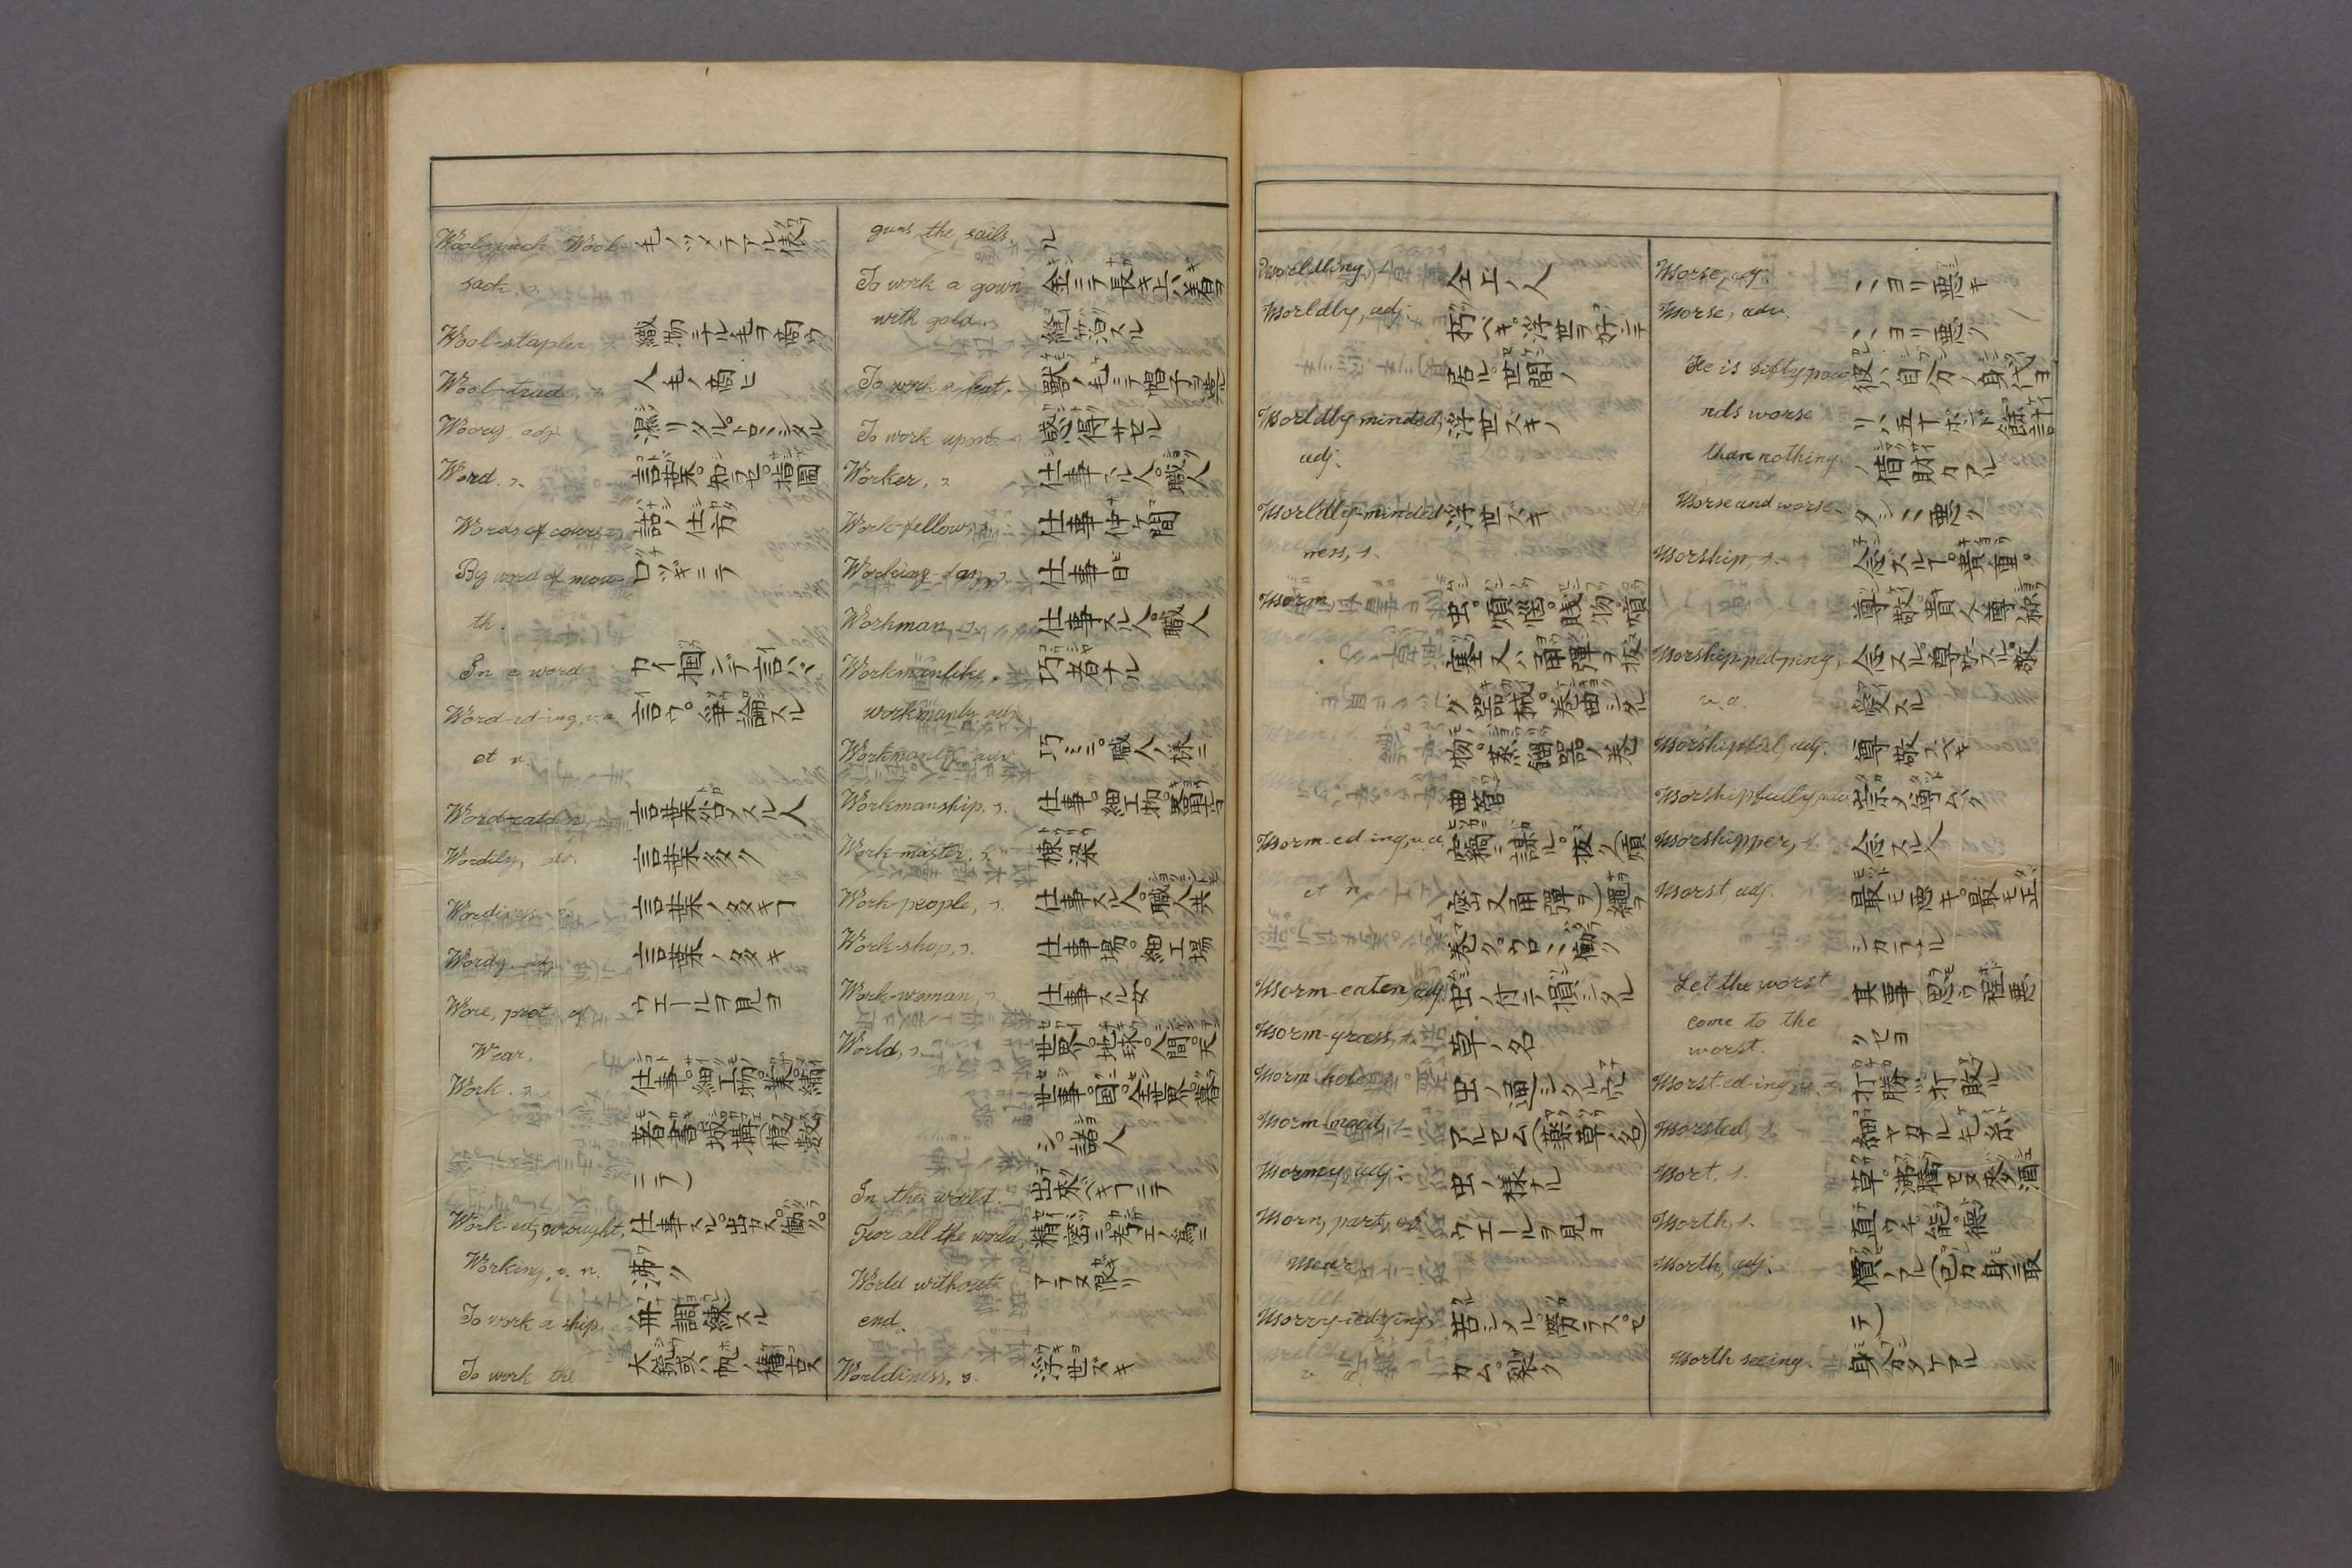 Wool-pack. Wool- モノツメテアル俵
sack. s.
Wool-stapler. s. 織物ニナル毛ヲ商ウ
Wool-trade, s. 人毛ノ商ヒ
Woory. adj. 濕リタル。トロミシタル
Word. s. 言葉。知ラセ。指圖
Words of course. 話ノ仕方
By word of mou- 口ツギニテ
th.
In a word カイ摘ンデ言ハバ
Word-ed-ing, v.a. 言ウ。爭論スル
et n.
Word-catcher 言葉咎メスル人
Wordily, adv. 言葉多ク
Wordiness. s. 言葉ノ多キヿ
Wordy. adj. 言葉ノ多キ
Wore, pret. of ウエールヲ見ヨ
Wear.
Work. s. 仕事。細工物。業。繍
著書。城搆(複數
ニテ)
Work-ed, wrought, 仕事スル。出カス。働ク。
Working, v. n. 沸ク
To work a ship. 舟調練スル
To work the 大銃或ハ帆ノ稽古ス
guns, the sails. ル
To work a gown 金ニテ長キ上ハ着ヲ
with gold. 縫箔スル
To work a hat. 獸ノ毛ニテ帽子ヲ造ル
To work upon. 感得サセル
Worker, s. 仕事スル人。職人
Work-fellow, s. 仕事仲ケ間
Working-day, s. 仕事日
Workman, s. 仕事スル人。職人
Workmanlike. 巧者ナル
workmanly. adj.
Workmanly. adv. 巧ミニ。職人ノ様ニ
Workmanship, s. 仕事。細工物。
Work-master. s. 棟梁
Work-people, s. 仕事スル人。職人共
Work-shop, s. 仕事場。細工場
Work-woman, s. 仕事スル女
World, s. 世界。地球。人間。天
世事。国。全世界。暮
シ。諸人
In the world. 出來ベキヿニテ
For all the world, 精密ニ。考エノ爲ニ
World without アラヌ限リ
end.
Worldiness. s. 浮世ズキ
Worldling, s. 仝上ノ人
Worldly, adj. 朽ベキ。浮世ヲ好ンテ
居ル。世間ノ
Worldly minded, 浮世ズキノ
adj.
Worldly-minded 浮世ズキ
ness, s.
Worm, s. 虫。煩惱。賎物。煩
塞又ハ角彈ヲ拔
ク器械。卷曲シタル
物。蒸餾器ノ卷
曲管
Worm-ed-ing, v.a. 竊ニ謀ル。拔ク(煩
et n. 密又角彈ヲ)繩ヲ
卷ク。ウロミ働ク
Worm-eaten, adj. 虫ノ付テ損シタル
Worm-grass, s. 草ノ名
Worm-hole, s. 虫ノ通シタル穴
Worm wood, s. アルセム(藥草ノ名)
Wormy, adj. 虫ノ様ナル
Worn, part, of ウエールヲ見ヨ
Wear.
Worry-ied-ying, 苦シメル。憐カラス。セ
v. a. カム。裂ク
Worse, adj. ヽヨリ惡キ
Worse, adv. ヽヨリ惡ク
He is fifty pou- 彼ハ自分ノ身代ヨ
nds worse リハ五十ポンド餘計
than nothing. ノ借財カアル
Worse and worse. タンヽ惡ク
Worship, s. 念スルヿ。貴重。
尊敬。貴人ノ尊称
Worship-ped-ping, 念スル。尊ウスル。敬
v. a. 愛スル
Worshipful, adj. 尊敬スベキ
Worshipfully, adv. 崇メ尊ムク
Worshipper, s. 念スル人
Worst, adj. 最モ惡キ。最モ正
シカラサル
Let the worst 其事思フ程惡
come to the クセヨ
worst.
Worst-ed-ing, v. a. 打勝ツ。打敗ル
Worsted, s. 細ヤカナル毛糸
Wort, s. 草。沸騰セヌ麥酒
Worth, s. 直ウチ。能。德
Worth, adj. 價ノアル(己カ身ニ取
テ)
Worth seeing. 身ル分タケアル